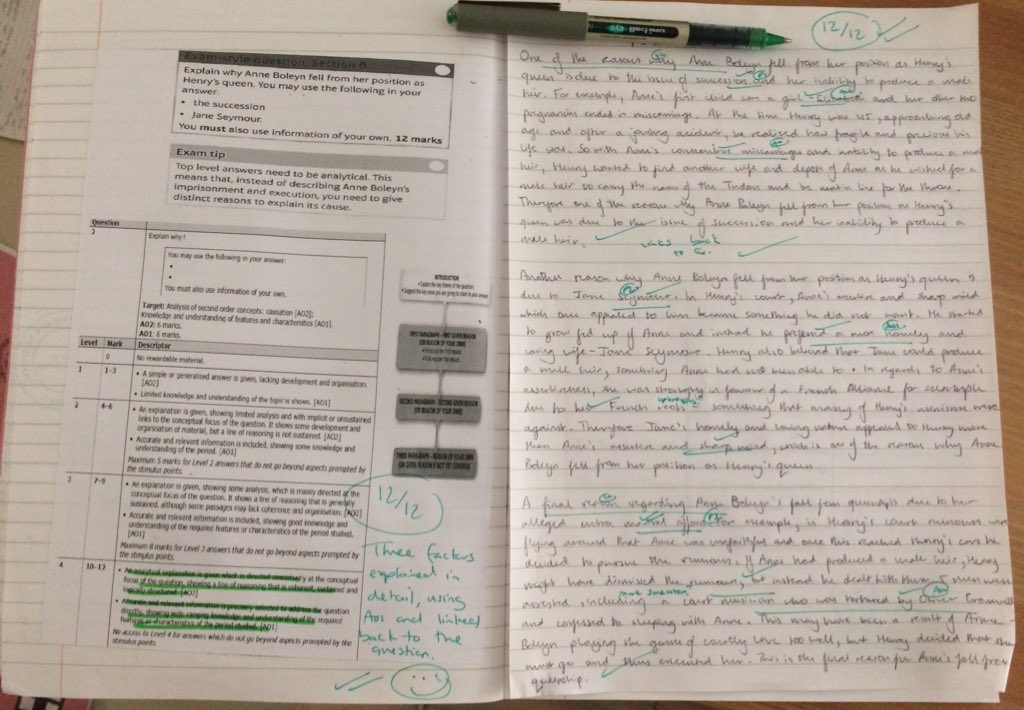 Exam-style question: Section B
Explain why Anne Boleyn fell from her position as
Henry's queen. You may use the following in your
answer:
• the succession
• Jane Seymour.
You must also use information of your own. 12 marks
Exam tip
Top level answers need to be analytical. This
means that, instead of describing Anne Boleyn's
imprisonment and execution, you need to give
distinct reasons to explain its cause.
Question
Explain why
You may use the following in your answer:
•
•
You must also use information of your own.
Target: Analysis of second order concepts: causation [AO2];
Knowledge and understanding of features and characteristics [AO1].
AO2: 6 marks.
AO1: 6 marks.
Level Mark Descriptor
0 No rewardable material.
1 1–3 • A simple or generalised answer is given, lacking development and organisation.
[AO2]
• Limited knowledge and understanding of the topic is shown. [AO1]
2 4–6 • An explanation is given, showing limited analysis and with implicit or unsustained
links to the conceptual focus of the question. It shows some development and
organisation of material, but a line of reasoning is not sustained. [AO2]
• Accurate and relevant information is included, showing some knowledge and
understanding of the period. [AO1]
Maximum 5 marks for Level 2 answers that do not go beyond aspects prompted by
the stimulus points.
3 7–9 • An explanation is given, showing some analysis, which is mainly directed at the
conceptual focus of the question. It shows a line of reasoning that is generally
sustained, although some passages may lack coherence and organisation. [AO2]
• Accurate and relevant information is included, showing good knowledge and
understanding of the required features or characteristics of the period studied.
[AO1]
Maximum 8 marks for Level 3 answers that do not go beyond aspects prompted by
the stimulus points.
4 10–12 • An analytical explanation is given which is directed consistently at the conceptual
focus of the question, showing a line of reasoning that is coherent, sustained and
logically structured. [AO2]
• Accurate and relevant information is precisely selected to address the question
directly, showing wide-ranging knowledge and understanding of the required
features or characteristics of the period studied. [AO1]
No access to Level 4 for answers which do not go beyond aspects prompted by the
stimulus points.
INTRODUCTION
• Explain the key theme of the question.
• Suggest the key areas you are going to cover in your answer
FIRST PARAGRAPH - FIRST GIVEN REASON
(OR REASON OF YOUR OWN)
SECOND PARAGRAPH - SECOND GIVEN REASON
(OR REASON OF YOUR OWN)
THIRD PARAGRAPH - REASON OF YOUR OWN
(OR GIVEN REASON IF NOT YET COVERED)
12/12
Three factors
explained in
detail, using
AO1 and linked
back to the
question.
uni-ball eye
12/12
One of the reasons why Anne Boleyn fell from her position as Henry's
queen is due to the issue of succession and her inability to produce a male
heir. For example, Anne's first child was a girl - Elizabeth and her other two
pregnancies ended in miscarriage. At the time Henry was 45, approaching old
age and after a jousting accident, he realised how fragile and precious his
life was. So with Anne's consecutive miscarriages and inability to produce a male
heir, Henry wanted to find another wife and depose of Anne as he wished for a
male heir to carry the name of the Tudors and be next in line for the throne.
Therefore one of the reasons why Anne Boleyn fell from her position as Henry's
queen was due to the issue of succession and her inability to produce a
male heir.
links back
to Q.
Another reason why Anne Boleyn fell from her position as Henry's queen is
due to Jane Seymour. In Henry's court, Anne's assertive and sharp mind
which once appealed to him became something he did not want. He started
to grow fed up of Anne and instead he prefered a more homely and
caring wife - Jane Seymour. Henry also believed that Jane could produce
a male heir, something Anne had not been able to. In regards to Anne's
assertiveness, she was strongly in favour of a French Alliance for example
due to her French upbringing something that many of Henry's ministers were
against. Therefore Jane's homely and loving nature appealed to Henry more
then Anne's assertive and sharp mind, which is one of the reason why Anne
Boleyn fell from her position as Henry's queen.
A final reason regarding Anne Boleyn's fall from queenship is due to her
alleged extra marital affairs. For example, in Henry's court rumours were
flying around that Anne was unfaithful and once this reached Henry's ears he
decided to pursue the rumours. If Anne had produced a male heir, Henry
might have dismissed the rumours, but instead he dealt with them. 5 men were
arrested, including a court musician who was tortured by Oliver Cromwell
Mark Smeaton
and confessed to sleeping with Anne. This may have been a result of Anne
Boleyn playing the game of courtly love too well, but Henry decided that she
must go and thus executed her. This is the final reason for Anne's fall from
queenship.